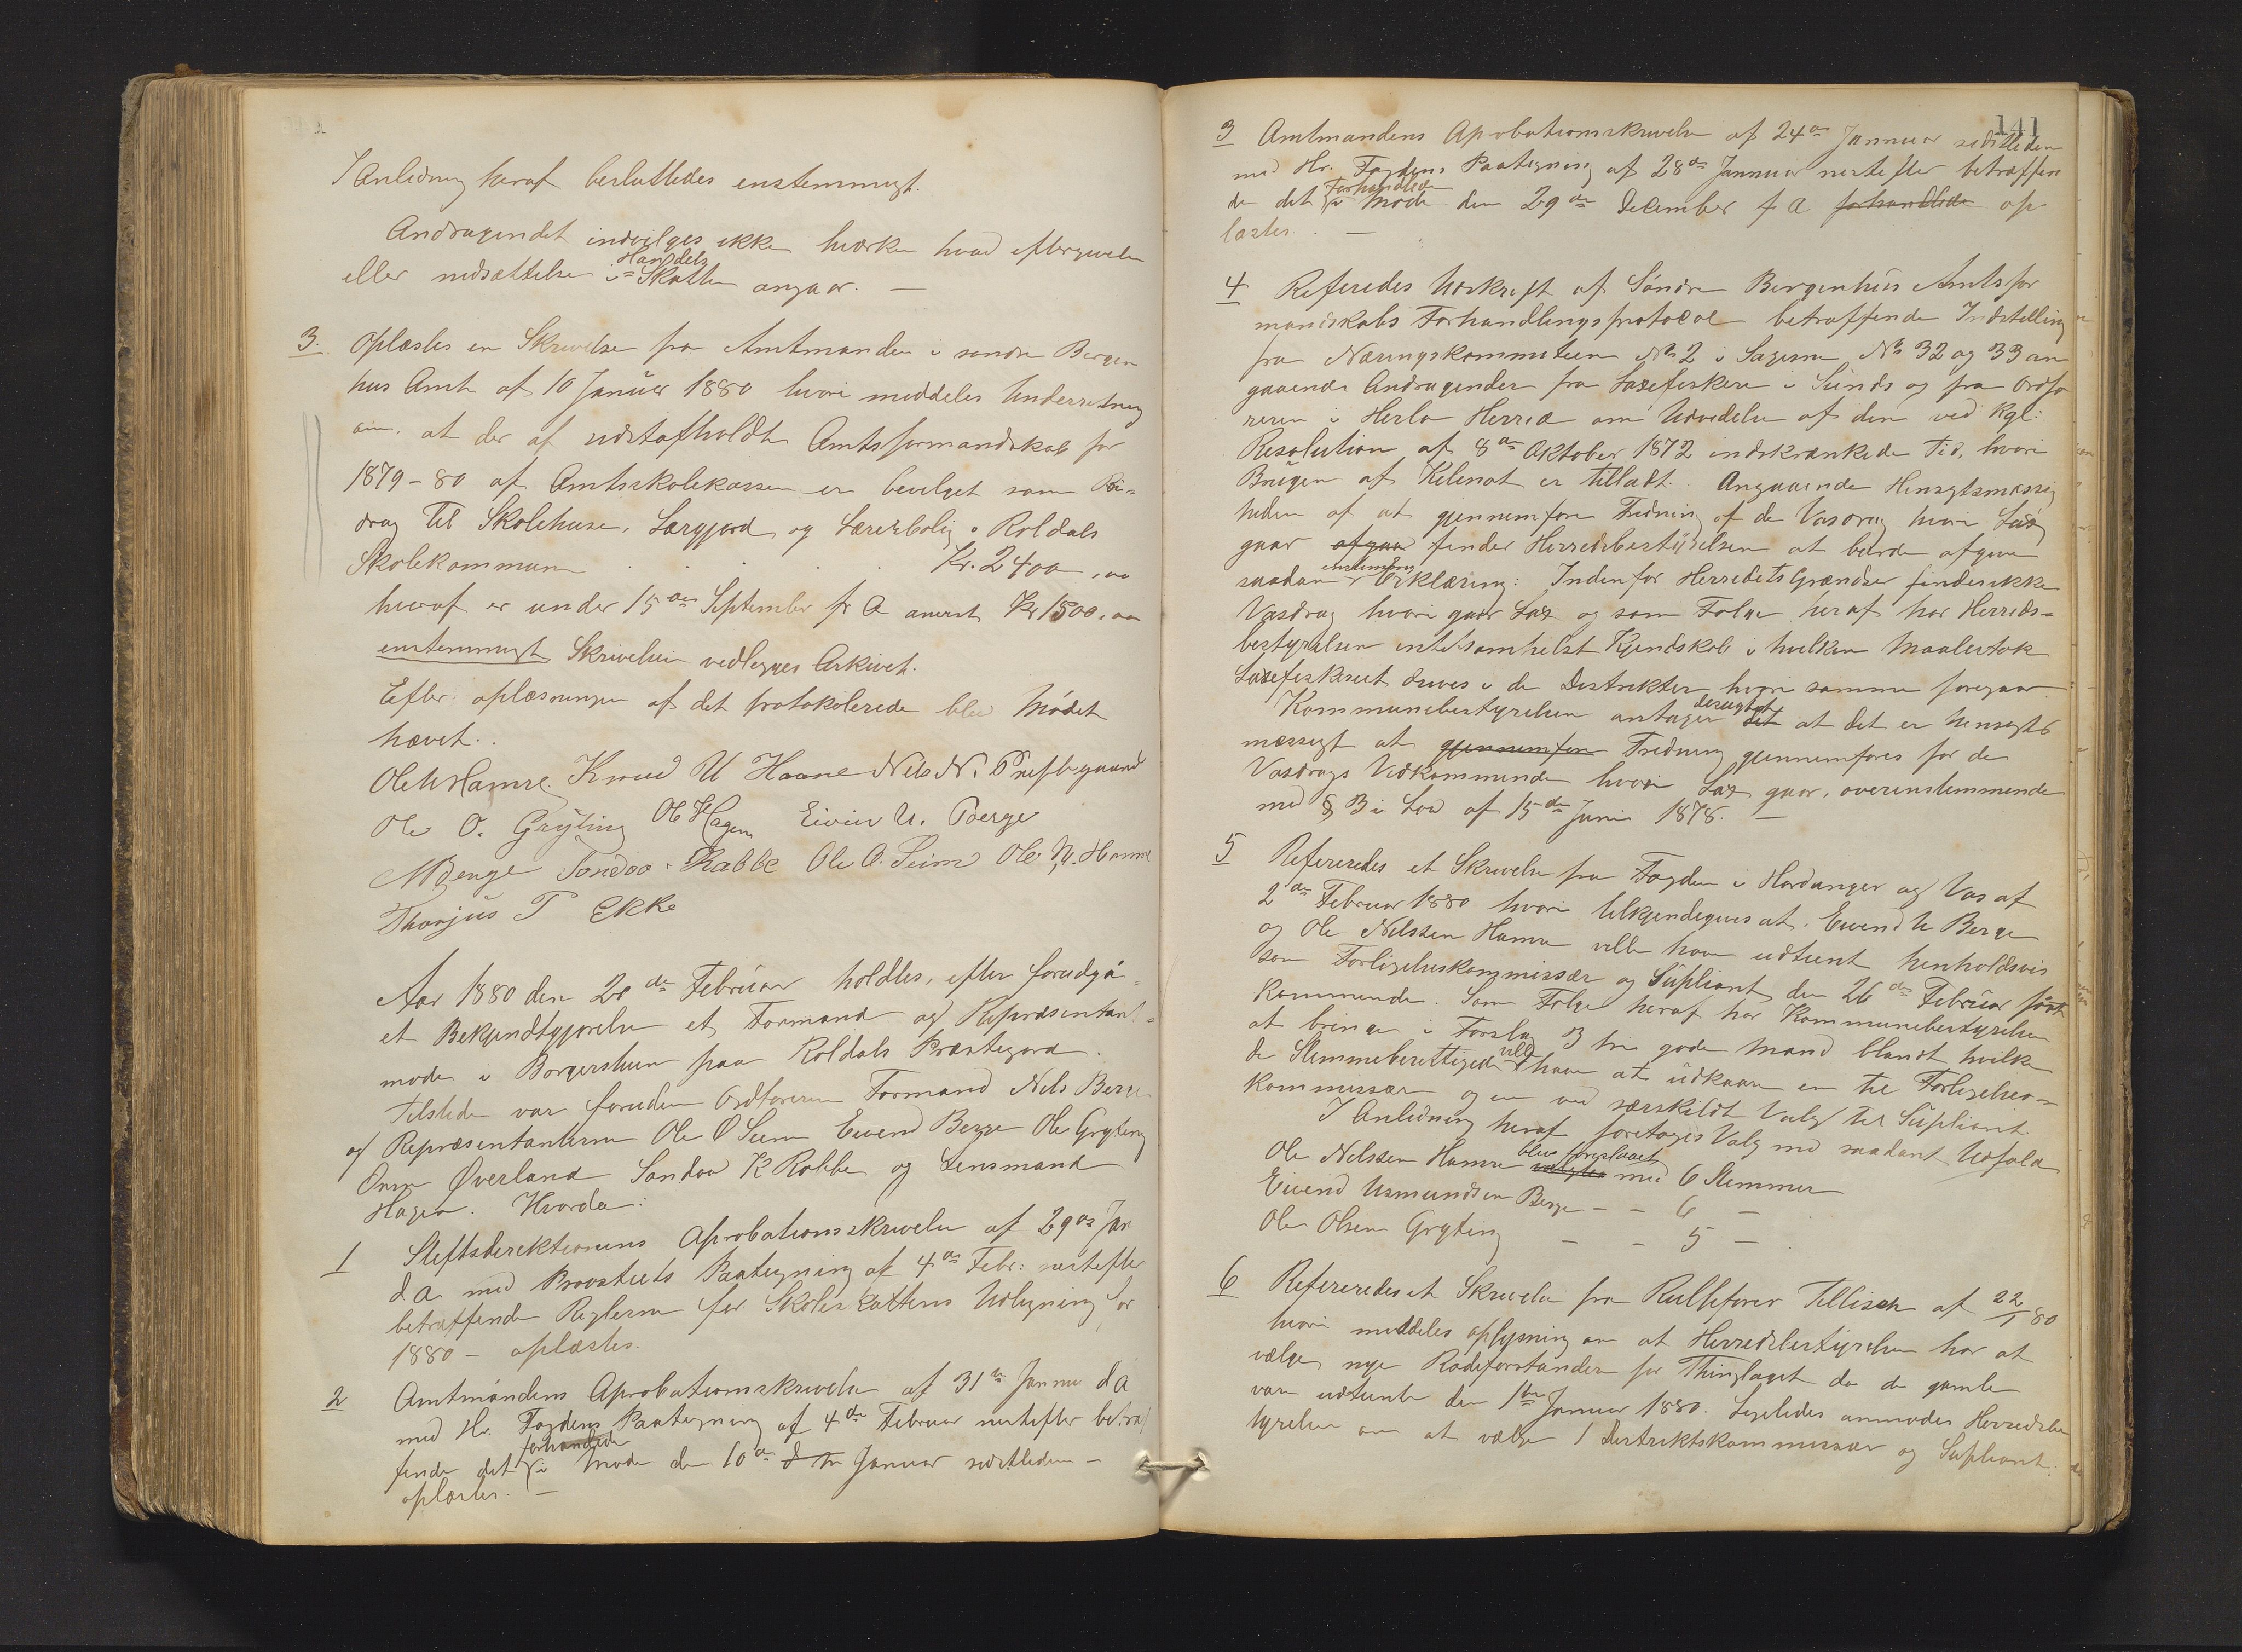 I Anledning heraf besluttedes enstemmigt.
Andragendet indvilges ikke hverken hvad eftergivelse
eller nedsættelse i Handels Skatten angaar. —
3. Oplæstes en Skrivelse fra Amtmanden i søndre Bergen
hus Amt af 10 Januar 1880 hvori meddeles Underretning
om, at der af sidstafholdte Amtsformandskab for
1879-80 af Amtsskolekassen er bevilget som Bi=
drag til Skolehuse, Lærgjord og Lærerbolig i Roldals
Skolekommune . . . . Kr. 2400,00
hvoraf er under 15de September f A anvist Kr 1500,00
enstemmigt Skrivelsen vedlegges Arkivet.
Efter oplæsningen af det protokolerede blev Mødet
hævet.
Ole N Hamre. Knud U Haane Nils N. Prestegaard
Ole O. Gryting Ole Hagen Eivin U. Berge
N Berge Sondov Rabbe Ole O. Seim Ole N. Hamre
Thorjus T Ekke
Aar 1880 den 20de Februar holdtes, efter forudgå=
et Bekjendtgjørelse et Formand og Repræsentant=
møde i Borgerstuen paa Roldals Præstegard.
Tilstede var foruden Ordføreren Formand Nils Berge
og Repræsentanterne Ole O Seim Eivend Berge Ole Gryting
Orm Øverland Sondov K Rabbe og Lensmand
Hagen. Hvorda:
1 Stiftsdirektionens Aprobationsskrivelse af 29de Jan
d.A. med Provstiets Paategning af 4de Febr: nestefter
betræffende Reglerne for Skoleskattens Udligning for
1880 - oplæstes.
2 Amtmandens Aprobationsskrivelse af 31te Janua d A
med Hr. Fogdens Paategning af 4de Februar nestefter betræf
fende det forhandlede i Møde den 10de d M Januar sidstleden —
oplæstes. —
141
3 Amtmandens Aprobationsskrivelse af 24de Januar sidstleden
med Hr. Fogdens Paategning af 28de Januar nestefter betræffen
de det Forhandlede i Møde den 29de December f A forhandlede op
læstes. —
4 Referedes Udskrift af Søndre Bergenhus Amtsfor
mandskabs Forhandlingsprotocol betræffende Indstilling
fra Næringskommiteen No 2 i Sagerne No 32 og 33 an
gaaende Andragender fra Laxefiskere i Sunds og fra Ordfø
reren i Herlø Herred om Udvidelse af den ved Kgl:
Resolution af 8de Oktober 1872 indskrænkede Tid, hvori
Brugen af Kilenot er tilladt. Angaaende Hensigtsmæssig
heden af at gjennemføre Fredning af de Vasdrag hvori Lax
gaar afgaa finder Herredsbestyrelsen at burde afgive
saadan enstemmig Erklæring: Indenfor Herredets Grændser findes ikke
Vasdrag hvori gaar Lax og som Følge heraf har Herreds=
bestyrelsen intetsomhelst Kjendskab i hvilken Maalestok
Laxefiskeriet drives i de Distrikter hvori samme foregaar.
Kommunebestyrelsen antager desuagtet det at det er hensigts
mæssigt at gjennemføre Fredning gjennemføres for de
Vasdrags Vedkommende hvori Lax gaar, overensstemmende
med § 3 i Lov af 15de Juni 1878. —
5 Refereredes et Skrivelse fra Fogden i Hardanger og Vos af
2den Februar 1880 hvori tilkjendegives at Eivend U Berge
og Ole Nilssen Hamre ville have udtient henholdsvis
som Forligelseskommissær og Supliant den 26de Februar først
kommende. Som Følge heraf har Kommunebestyrelsen
at bringe i Forslag 3 tre gode Mænd blandt hvilke
de Stemmeberettigede vill have at udkaare en til Forligelses=
kommissær og en ved særskildt Valg til Supliant.
I Anledning heraf foretages Valg med saadant Udfald
Ole Nilssen Hamre blev foreslaaet valgtes med 6 Stemmer
Eivend Usmundsen Berge — — 6 —
Ole Olsen Gryting — — 5 —
6 Refereredes et Skrivelse fra Rullefører Tellisen af 22/1 80
hvori meddeles oplysning om at Herredsbestyrelsen har at
vælge nye Rodeforstandere for Thinglaget da de gamle
var udtient den 1ste Januar 1880. Ligeledes anmodes Herredsbe
styrelsen om at vælge 1 Distriktskommissær og Supliant.